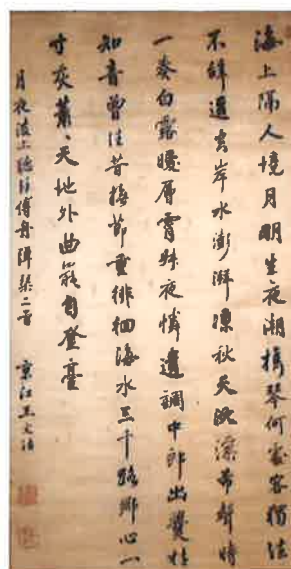 海上隔人境月明生夜潮携琴何處客獨法
不辭遥去岸水澎湃陳秋天泬漻希聲時
一奏白露曖層霄妹夜憐遺調中郎出爨
知音曾注昔撫節重徘徊海水三千路鄉心一
寸灰蕭々天地外曲罷自登臺
月夜海上聽 傅丹 彈琴二首 京江王文治